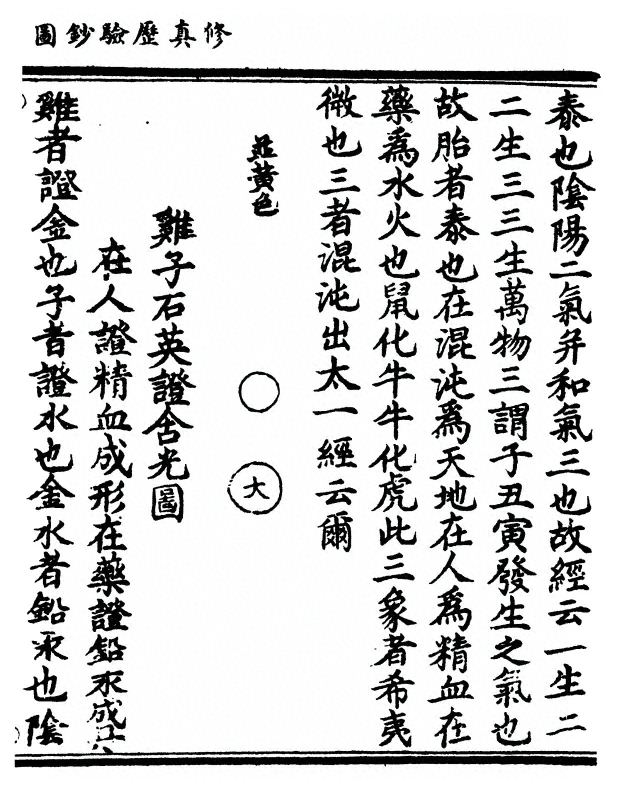 修真歷驗鈔圖
泰也陰陽二氣并和氣三也故經云一生二
二生三三生萬物三謂子丑寅發生之氣也
故胎者泰也在混沌爲天地在人爲精血在
藥爲水火也鼠化牛牛化虎此三象者希夷
微也三者混沌出太一經云爾
並黃色
大
雞子石英證含光圖
在人證精血成形在藥證鉛汞成
雞者證金也子者證水也金水者鉛汞也陰